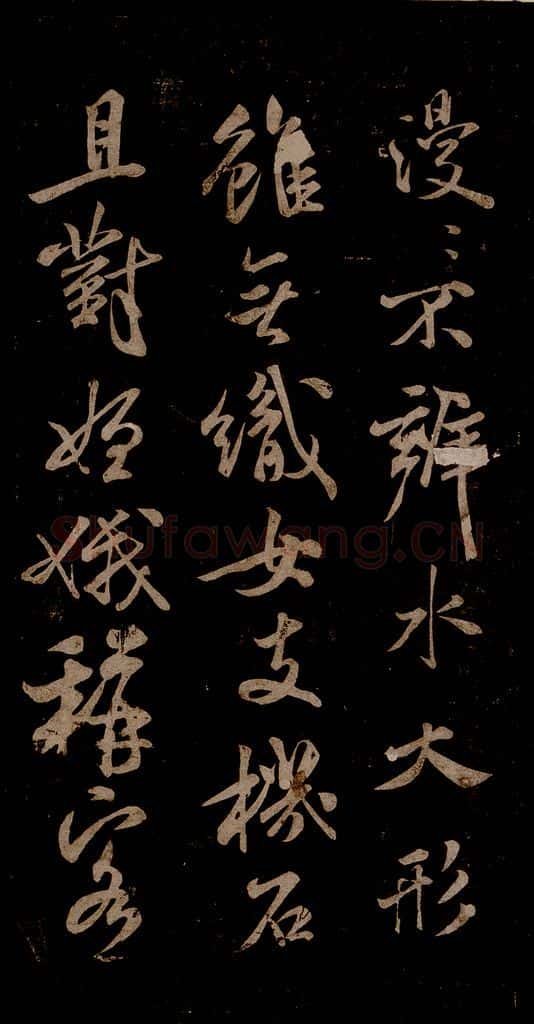 漫〻不辨水大形
雖無織女支機石
且對姮娥稱客
Shufawang.CN